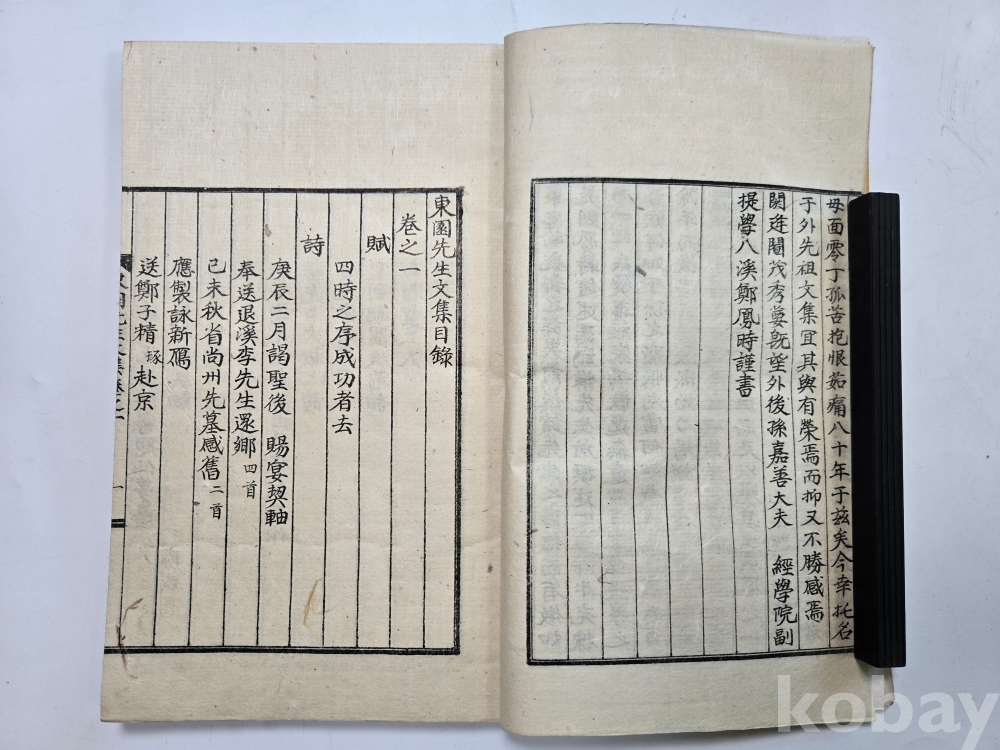 毋面零丁孤苦抱恨茹痛八十年于玆矣今幸托名
于外先祖文集宜其與有榮焉而抑又不勝感焉
閼逢閹茂秀葽旣望外後孫嘉善大夫 經學院副
提學八溪鄭鳳時謹書
東園先生文集目錄
卷之一
賦
四時之序成功者去
詩
庚辰二月謁聖後 賜宴契軸
奉送退溪李先生還鄉 四首
己未秋省尙州先墓感舊 二首
應製詠新鴈
送鄭子精 琢 赴京
東園先生文集卷之一
kobay